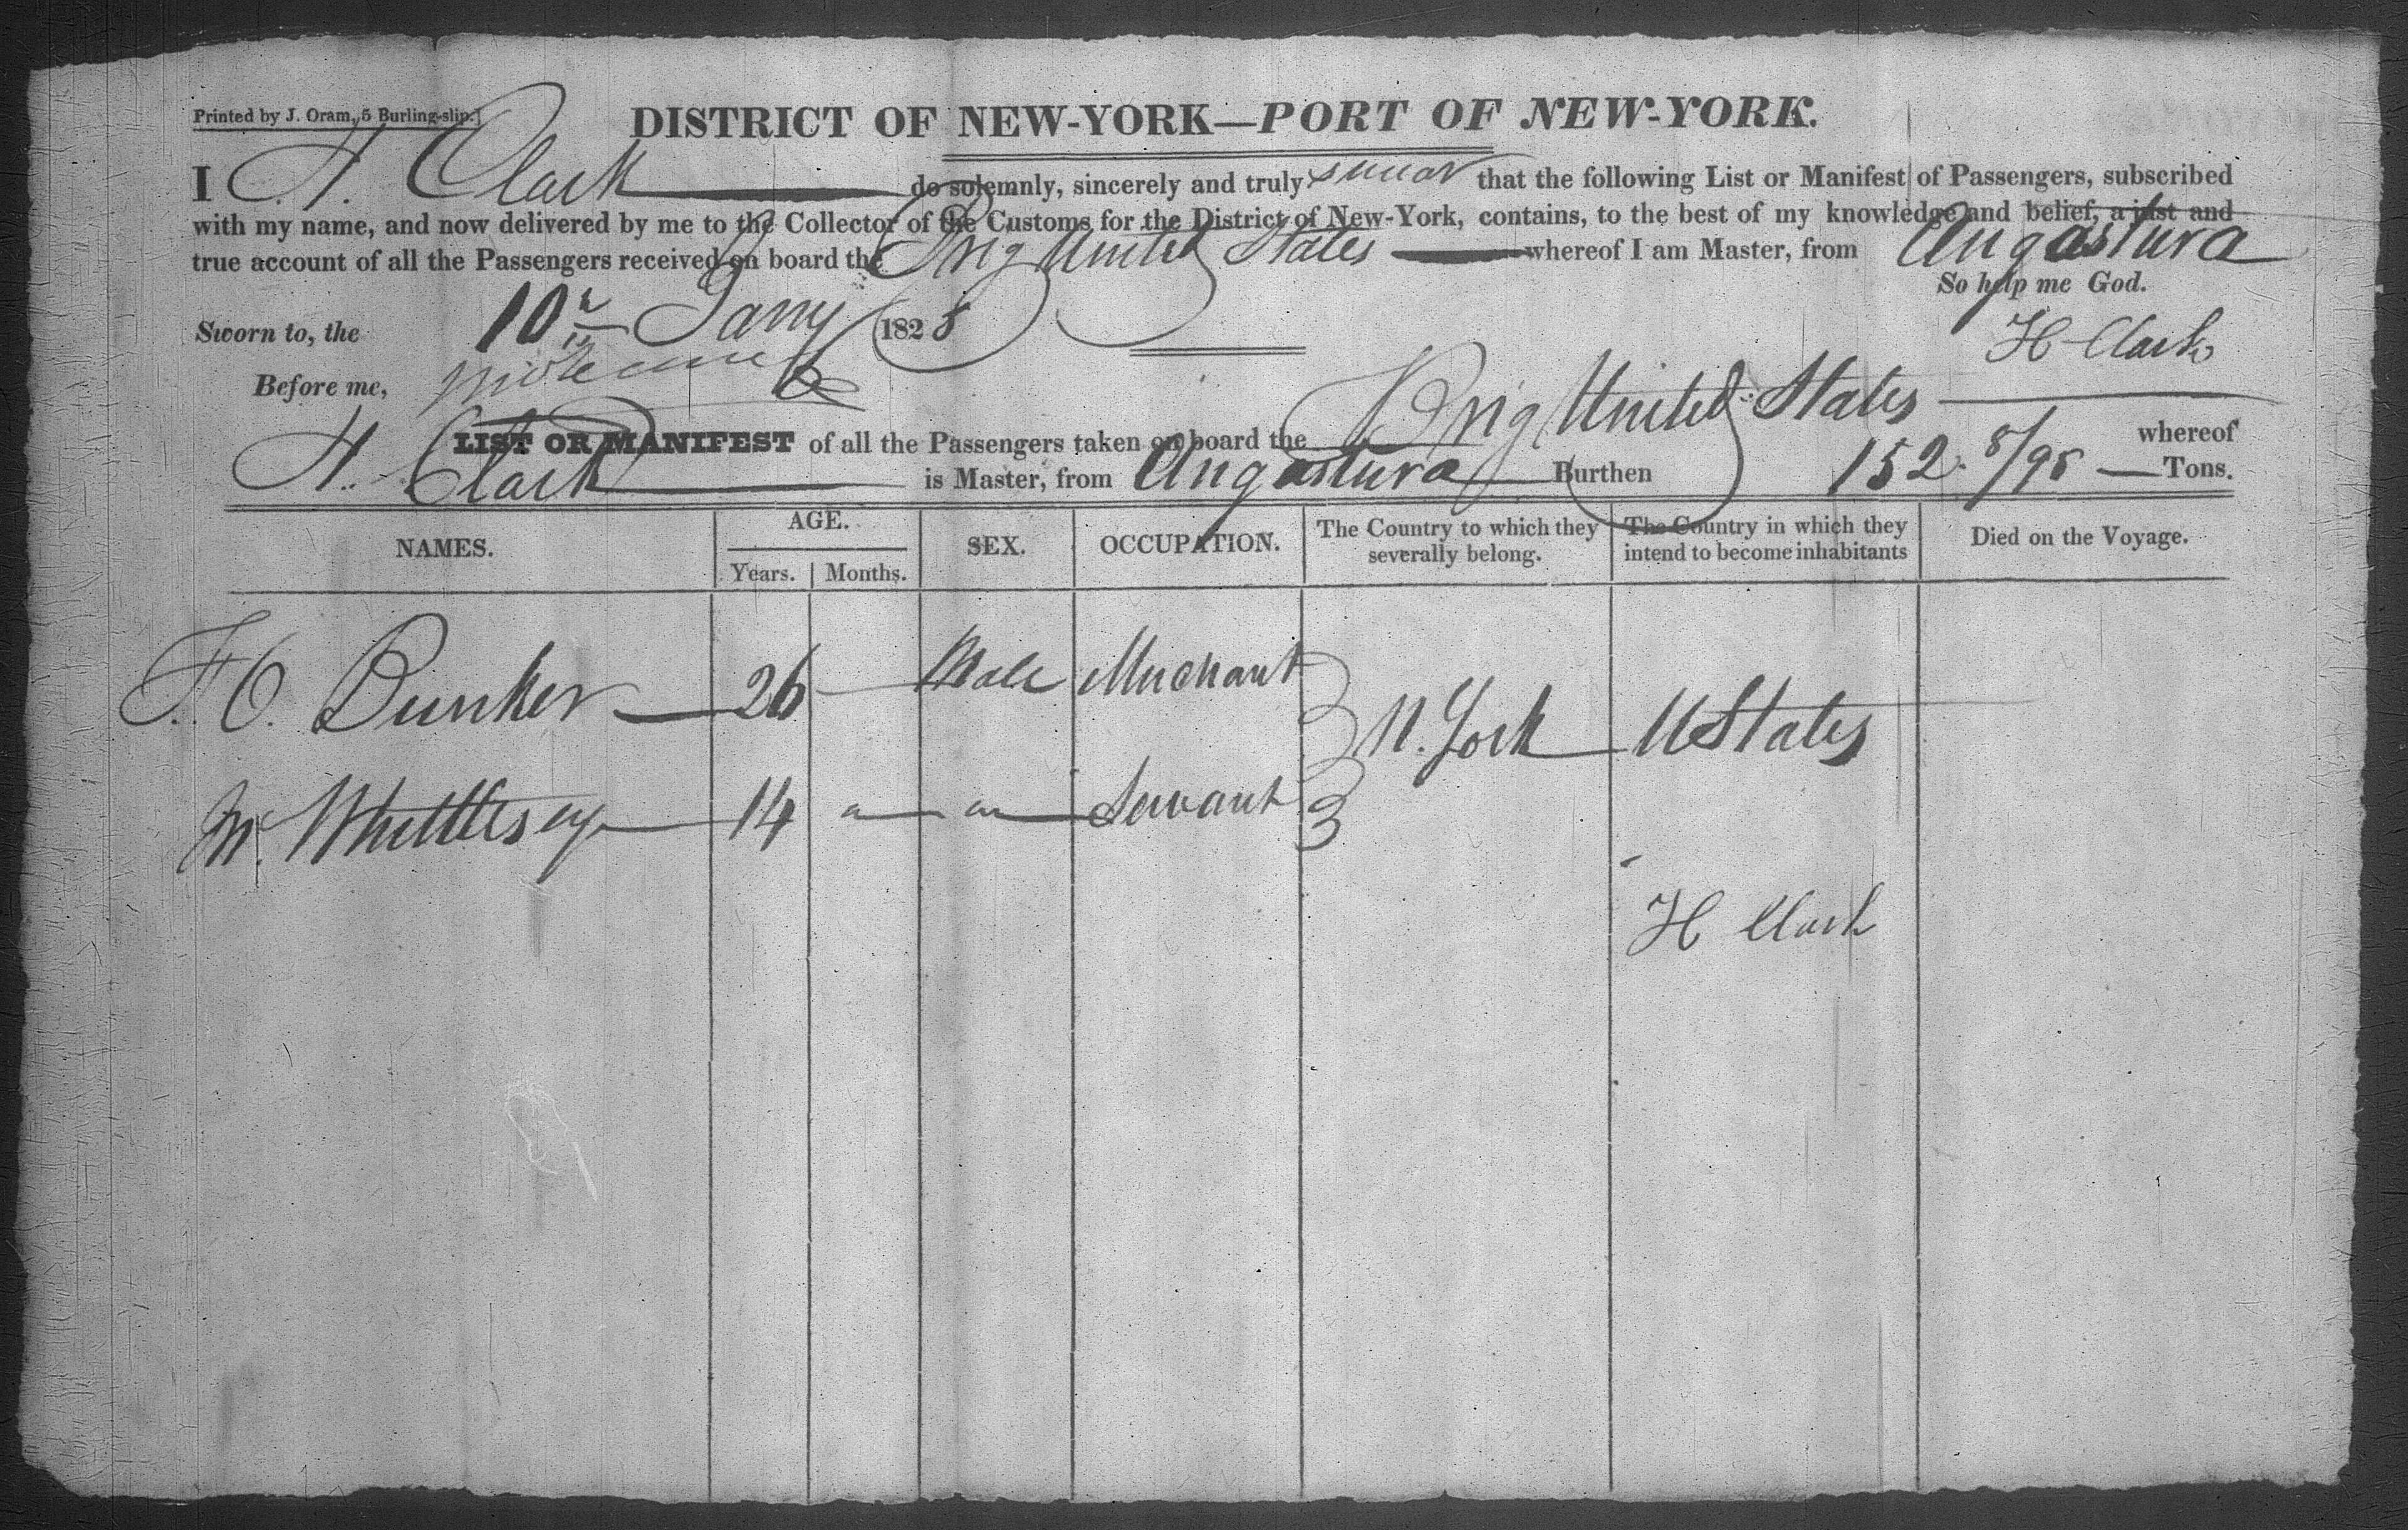 Printed by J. Oram, 5 Burling-slip.]
DISTRICT OF NEW-YORK—PORT OF NEW-YORK.
I H. Clark do solemnly, sincerely and truly swear that the following List or Manifest of Passengers, subscribed
with my name, and now delivered by me to the Collector of the Customs for the District of New-York, contains, to the best of my knowledge and belief, a just and
true account of all the Passengers received on board the Brig United States whereof I am Master, from Angastura
So help me God.
Sworn to, the 10th Jany 1828
H Clark
Before me,
LIST OR MANIFEST of all the Passengers taken on board the Brig United States whereof
H. Clark is Master, from Angastura Burthen 152. 8/95 Tons.
NAMES. AGE. Years. Months. SEX. OCCUPATION. The Country to which they severally belong. The Country in which they intend to become inhabitants Died on the Voyage.
F. C. Bunker 26 Male Merchant
N. York U States
M. Whittlesey 14 " " Servant
H Clark